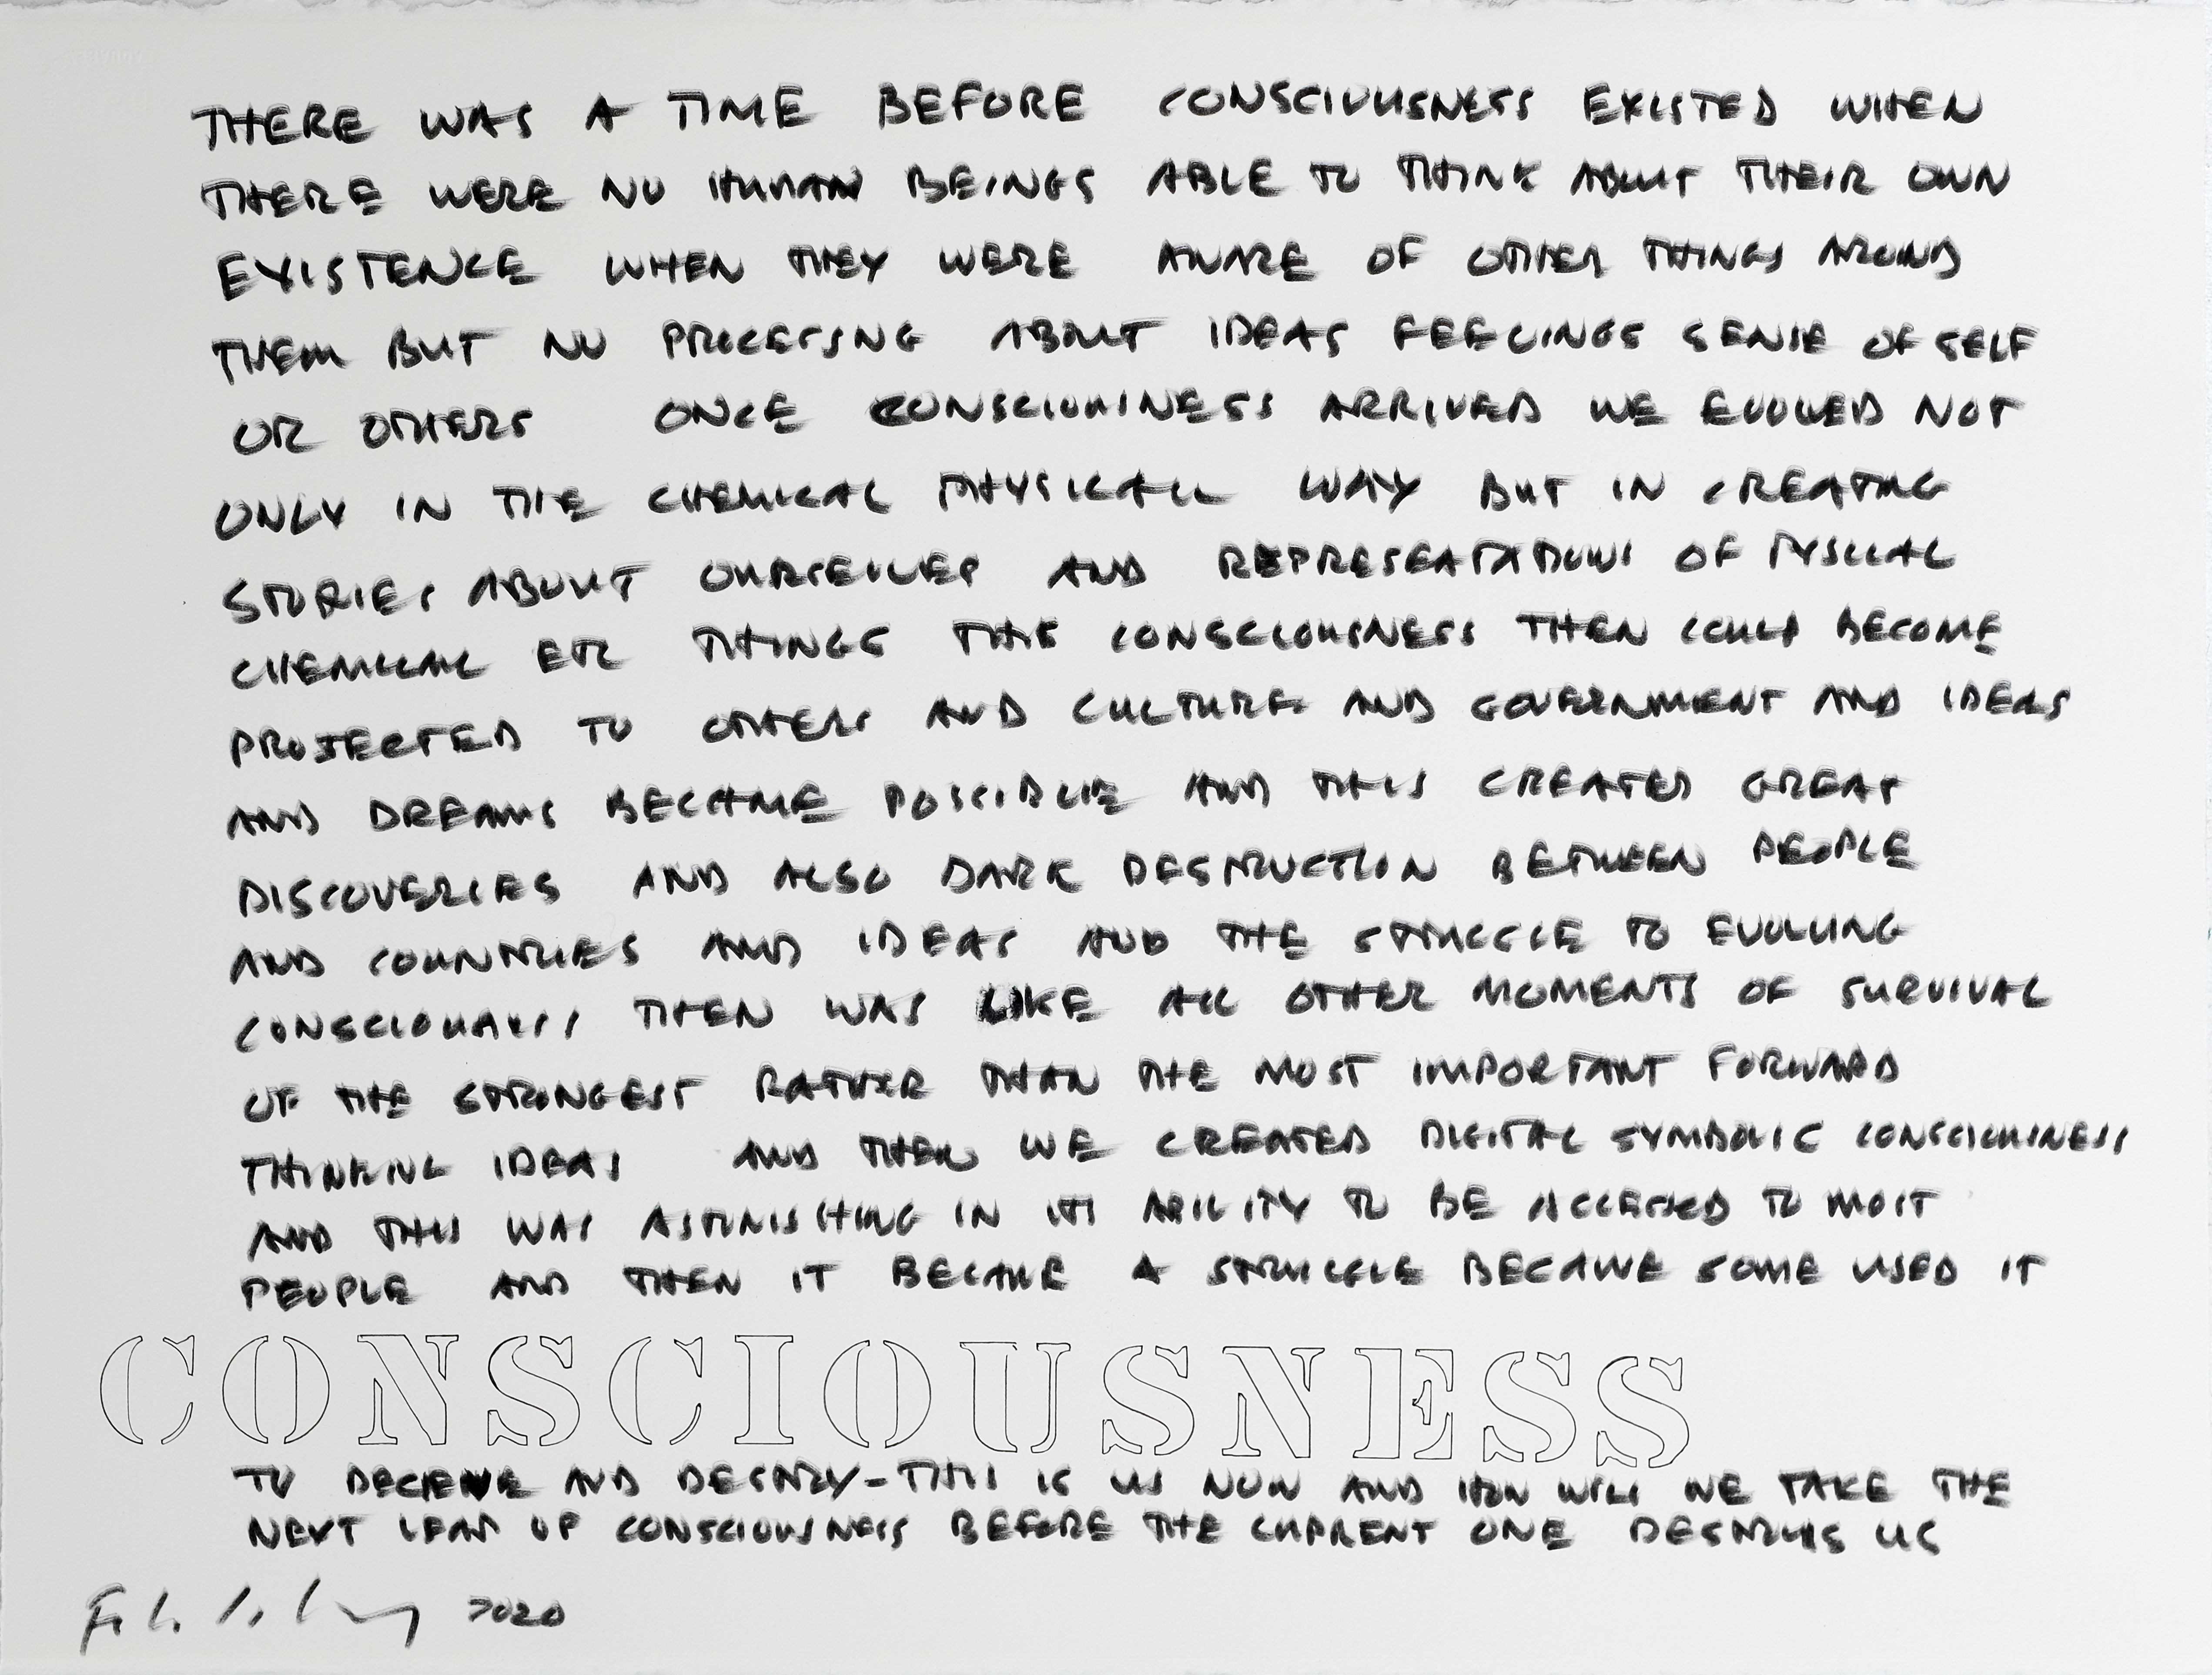 THERE WAS A TIME BEFORE CONSCIOUSNESS EXISTED WHEN
THERE WERE NO HUMAN BEINGS ABLE TO THINK ABOUT THEIR OWN
EXISTENCE WHEN THEY WERE AWARE OF OTHER THINGS AROUND
THEM BUT NO PROCESSNG ABOUT IDEAS FEELINGS SENSE OF SELF
OR OTHERS ONCE CONSCIOUSNESS ARRIVED WE EVOLVED NOT
ONLY IN THE CHEMICAL PHYSICALL WAY BUT IN CREATING
STORIES ABOUT OURSELVES AND OF
CHEMICAL ETC THINGS THIS CONSCIOUSNESS THEN COULD BECOME
PROJECTED TO OTHERS AND CULTURE AND GOVERNMENT AND IDEAS
AND DREAMS BECAME POSSIBLE AND THIS CREATED GREAT
DISCOVERIES AND ALSO DARK DESTRUCTION BETWEEN PEOPLE
AND COUNTRIES AND IDEAS AND THE STRUGGLE TO EVOLVING
CONSCIOUSNESS THEN WAS LIKE ALL OTHER MOMENTS OF SURVIVAL
OF THE STRONGEST RATHER THAN THE MOST IMPORTANT FORWARD
THINKING IDEAS AND THEN WE CREATED DIGITAL SYMBOLIC CONSCIOUSNESS
AND THIS WAS ASTONISHING IN ITS ABILITY TO BE ACCESSED TO MOST
PEOPLE AND THEN IT BECAME A STRUGGLE BECAUSE SOME USED IT
CONSCIOUSNESS
TO DECIEVE AND DESTROY-THIS IS US NOW AND HOW WILL WE TAKE THE
NEXT LEAP OF CONSCIOUSNESS BEFORE THE CURRENT ONE DESTROYS US
2020